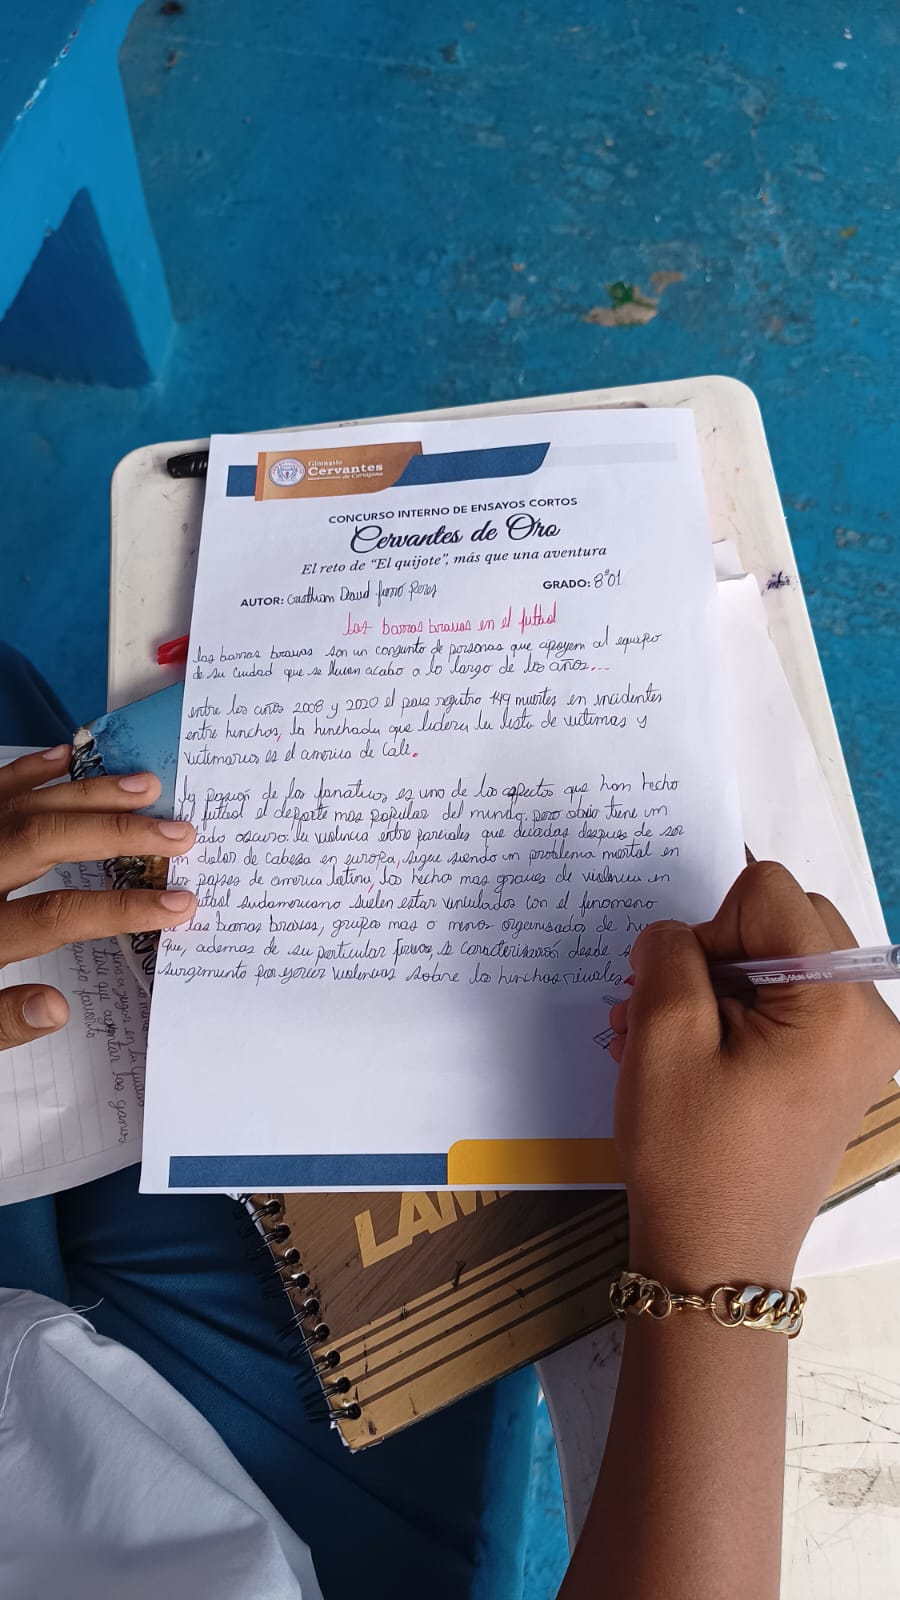 Gimnasio
Cervantes
de Cartagena
CONCURSO INTERNO DE ENSAYOS CORTOS
Cervantes de Oro
El reto de "El quijote", más que una aventura
AUTOR: David Perez
GRADO: 8°01
las barras bravas en el futbol
las barras bravas son un conjunto de personas que apoyem al equipo
de su ciudad que se llevan acabo a lo largo de los años...
entre los años 2008 y 2020 el pais registro 149 muertes en incidentes
entre hinchas, la hinchada que lidera la lista de victimas y
victimarios es el america de Cali.
la pasion de los fanaticos es uno de los aspectos que han hecho
del futbol el deporte mas popular del mundo, pero tiene un
lado oscuro: la violencia entre parciales que decadas despues de ser
un dolor de cabesa en europa, sigue siendo un problema mortal en
los paises de america latina, los hechos mas graves de violencia en
futbol sudamericano suelen estar vinculados con el fenomeno
de las barras bravas, grupos mas o menos organisados de
que, ademas de su particular fervor, se caracterisaron desde
surgimiento por ejercer violencias sobre los hinchas rivales.
LAM